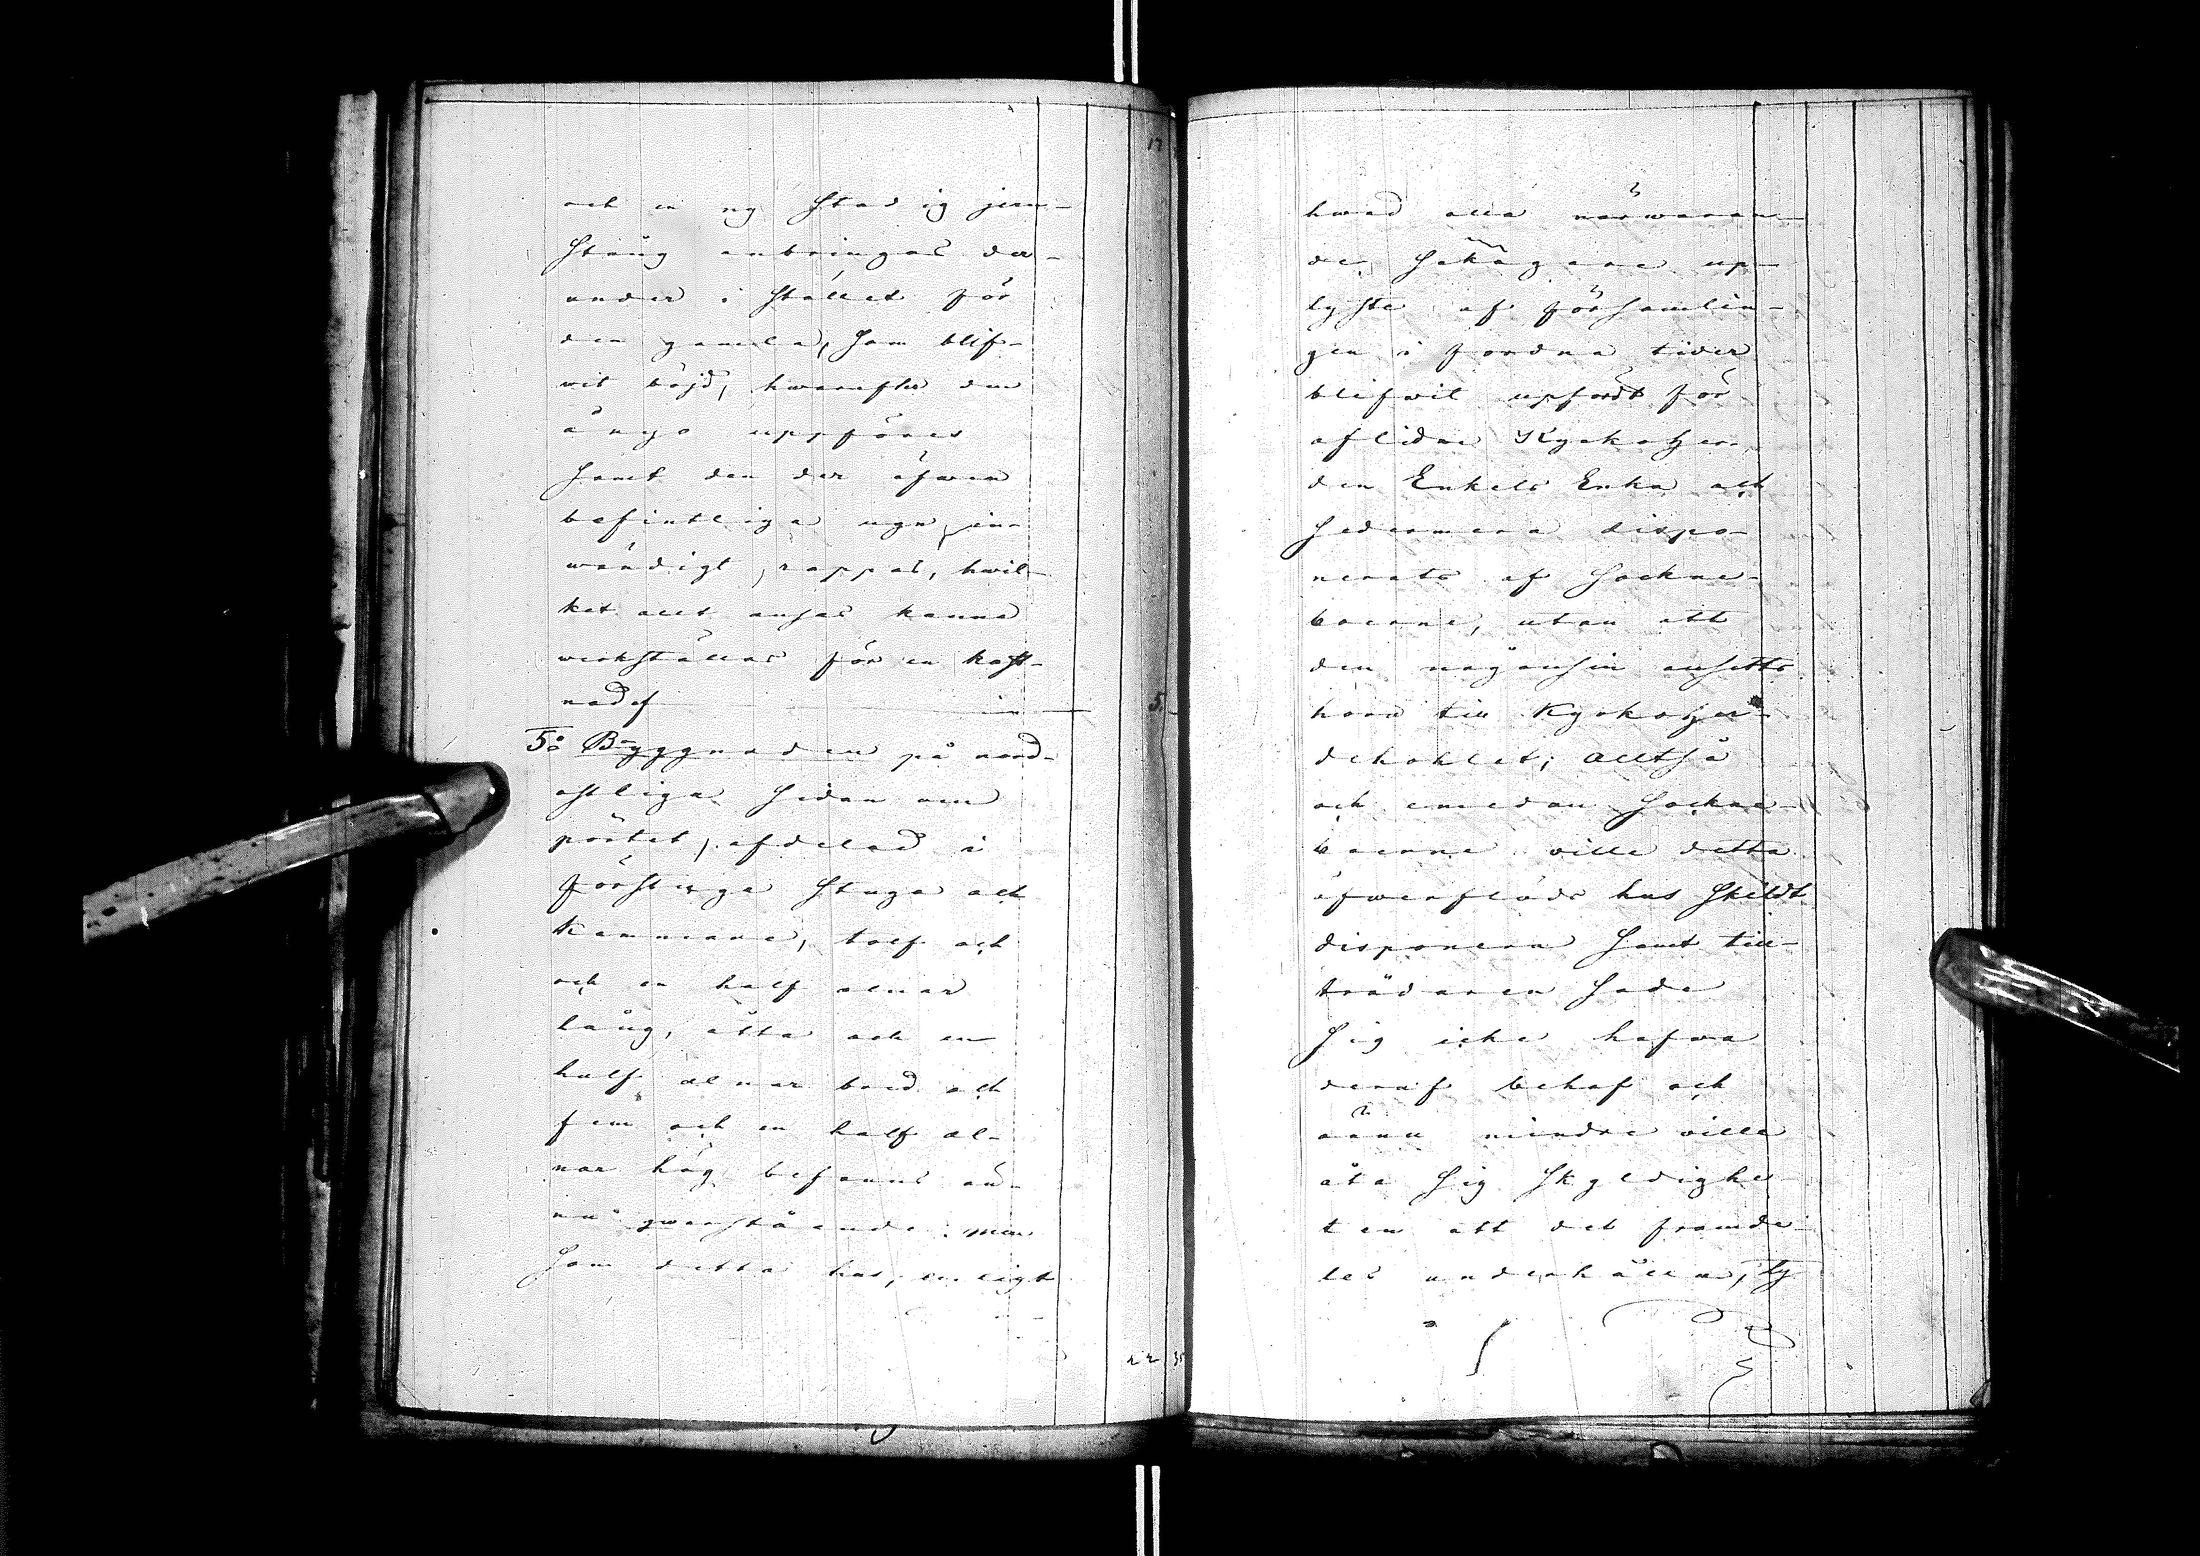 17
och en ny stadig jern-
stång anbringas der-
under i stället för
den gamla, som blif-
vit böjd, hwarefter den
å nyo uppföres
samt den der äfwen
befintliga ugn in-
wändigt rappas, hwil-
ket allt anses kunna
werkställas för en kost-
nad af
5.
5:o Byggnaden på nord-
ostliga sidan om
pörtet, afdelad i
förstuga stuga och
kammare, tolf och
och en half alnar
lång, åtta och en
half alnar bred och
fem och en half al-
nar hög befanns än-
nu qwarstående men
som detta hus, enligt
22 35
hwad alla närwaran-
de Sokägare up-
lyste af församlin-
gen i fordna tider
blifwit upfördt för
aflidne Kyrkoher-
den Enkels Enka och
sedermera dispo-
nerats af Sockne-
boerne, utan att
den någonsin ansetts
höra till Kyrkoher-
debohlet; Alltså
och emedan Sockne-
boerne ville detta
öfwerflöds hus skildt
disponera samt till-
trädaren sade
sig icke hafwa
deraf behof och
ännu mindre ville
åta sig skyldighe-
ten att det framde-
les underhålla, Ty